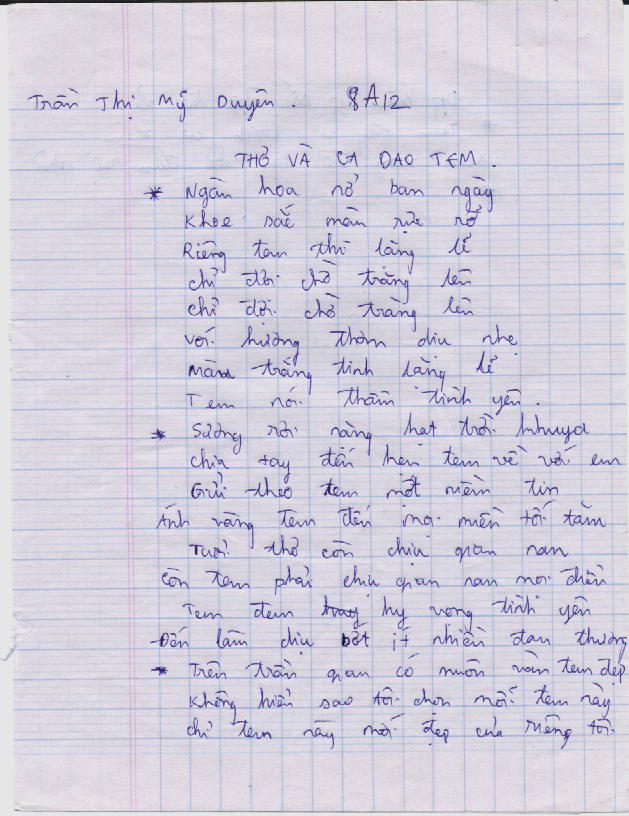 Trần Thị Mỹ Duyên. 8A12
THƠ VÀ CA DAO TEM.
* Ngàn hoa nở ban ngày
Khoe sắc màu rực rỡ
Riêng tem thì lặng lẽ
chỉ đợi chờ trăng lên
chỉ đợi chờ trăng lên
với hương thơm dịu nhẹ
Màu trắng tinh lặng lẽ
Tem nói thầm tình yêu.
* Sương rơi nặng hạt trời khuya
chia tay đến hẹn tem về với em
Gửi theo tem một niềm tin
Ánh vàng tem đến mọi miền tối tăm
Tuổi thơ còn chịu gian nan
còn tem phải chịu gian nan mọi điều
Tem đem hy vọng tình yêu
Đến làm dịu bớt ít nhiều đau thương
* Trên trần gian có muôn vàn tem đẹp
Không hiểu sao tôi chọn mỗi tem này
chỉ tem này mới đẹp của riêng tôi.